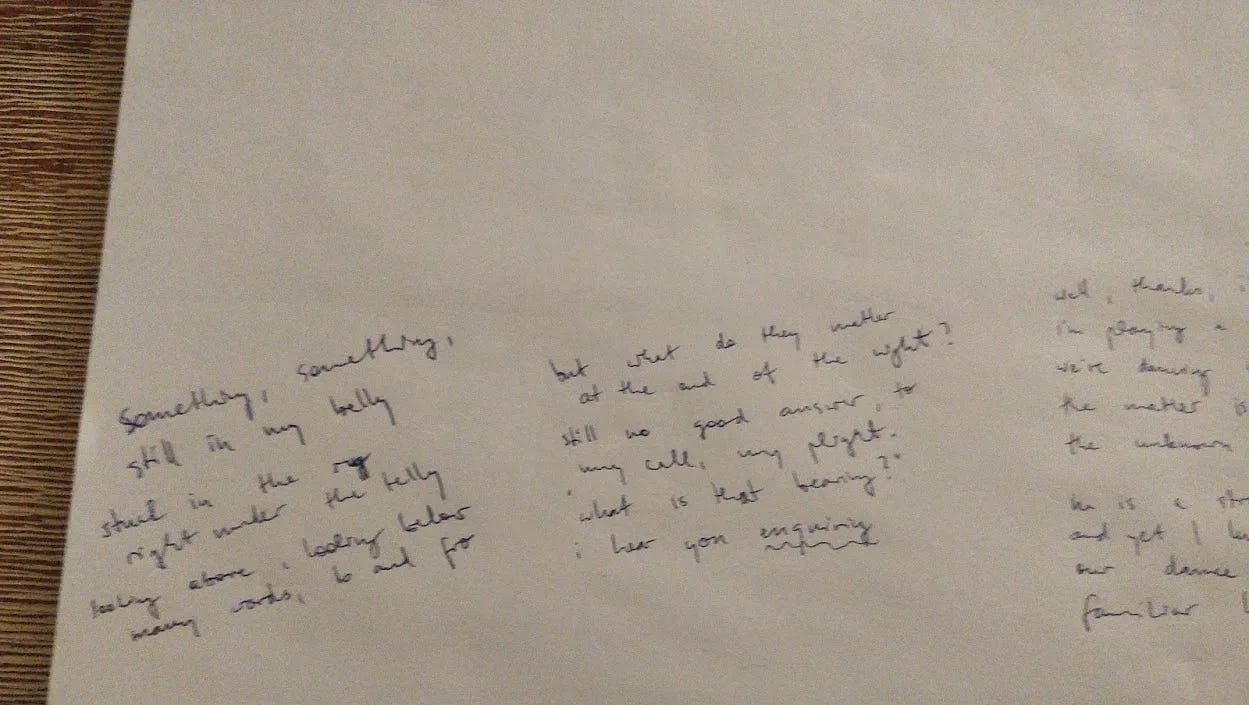 Something, something,
still in my belly
stuck in the
right under the telly
looking above, looking below
many words, to and fro
but what do they matter
at the end of the night?
still no good answer, to
my call, my plight.
"what is that bearing?"
i hear you enquiring
well, thanks, i
i'm playing a
we're dancing
the matter is
the unknown
he is a str
and yet I kn
our dance
familiar